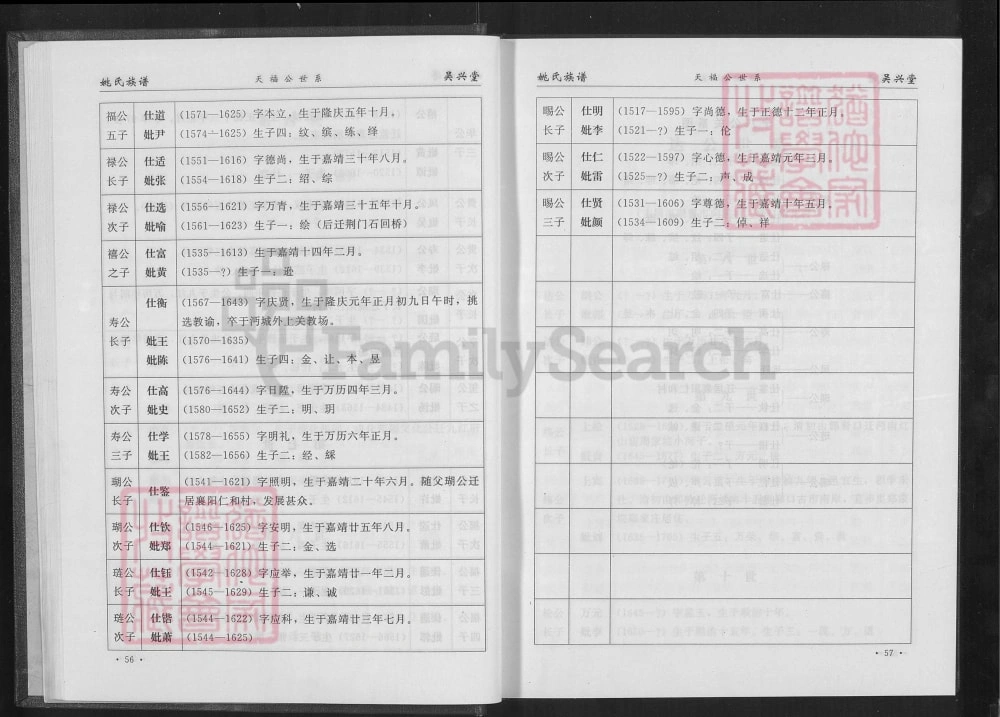 姚氏族谱 天福公世系 吴兴堂
福公 仕道 (1571—1625) 字本立，生于隆庆五年十月。
五子 妣尹 (1574—1625) 生子四：纹、缤、练、绎
禄公 仕适 (1551—1616) 字德尚，生于嘉靖三十年八月。
长子 妣张 (1554—1618) 生子二：绍、综
禄公 仕选 (1556—1621) 字万青，生于嘉靖三十五年十月。
次子 妣喻 (1561—1623) 生子一：绘（后迁荆门石回桥）
禧公 仕富 (1535—1613) 生于嘉靖十四年二月。
之子 妣黄 (1535—?) 生子一：逊
仕衡 (1567—1643) 字庆贤，生于隆庆元年正月初九日午时，挑
寿公 选教谕，卒于沔城外上关教场。
长子 妣王 (1570—1635)
妣陈 (1576—1641) 生子四：金、让、本、昱
寿公 仕高 (1576—1644) 字日陞，生于万历四年三月。
次子 妣史 (1580—1652) 生子二：明、玥
寿公 仕学 (1578—1655) 字明礼，生于万历六年正月。
三子 妣王 (1582—1656) 生子二：经、綵
瑚公 仕鉴 (1541—1621) 字照明，生于嘉靖二十年六月。随父瑚公迁
长子 居襄阳仁和村，发展甚众。
瑚公 仕钦 (1546—1625) 字安明，生于嘉靖廿五年八月。
次子 妣郑 (1544—1621) 生子二：金、选
琏公 仕钰 (1542—1628) 字应举，生于嘉靖廿一年二月。
长子 妣王 (1545—1629) 生子二：谦、诚
琏公 仕锴 (1544—1622) 字应科，生于嘉靖廿三年七月。
次子 妣萧 (1544—1625)
· 56 ·
姚氏族谱 天福公世系 吴兴堂
赐公 仕明 (1517—1595) 字尚德，生于正德十二年正月。
长子 妣李 (1521—?) 生子一：伦
赐公 仕仁 (1522—1597) 字心德，生于嘉靖元年三月。
次子 妣雷 (1525—?) 生子二：声、成
赐公 仕贤 (1531—1606) 字尊德，生于嘉靖十年五月。
三子 妣颜 (1534—1609) 生子二：倬、祥
· 57 ·
FamilySearch